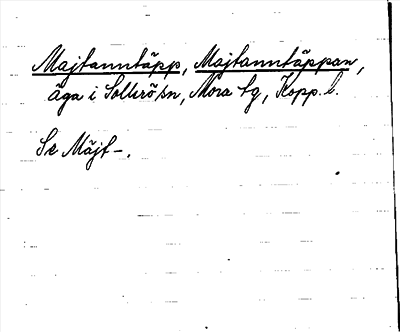 Majtanntäpp, Majtanntäppan,
äga i Sollerö sn, Mora tg, Kopp. l.
Se Mäjt-.